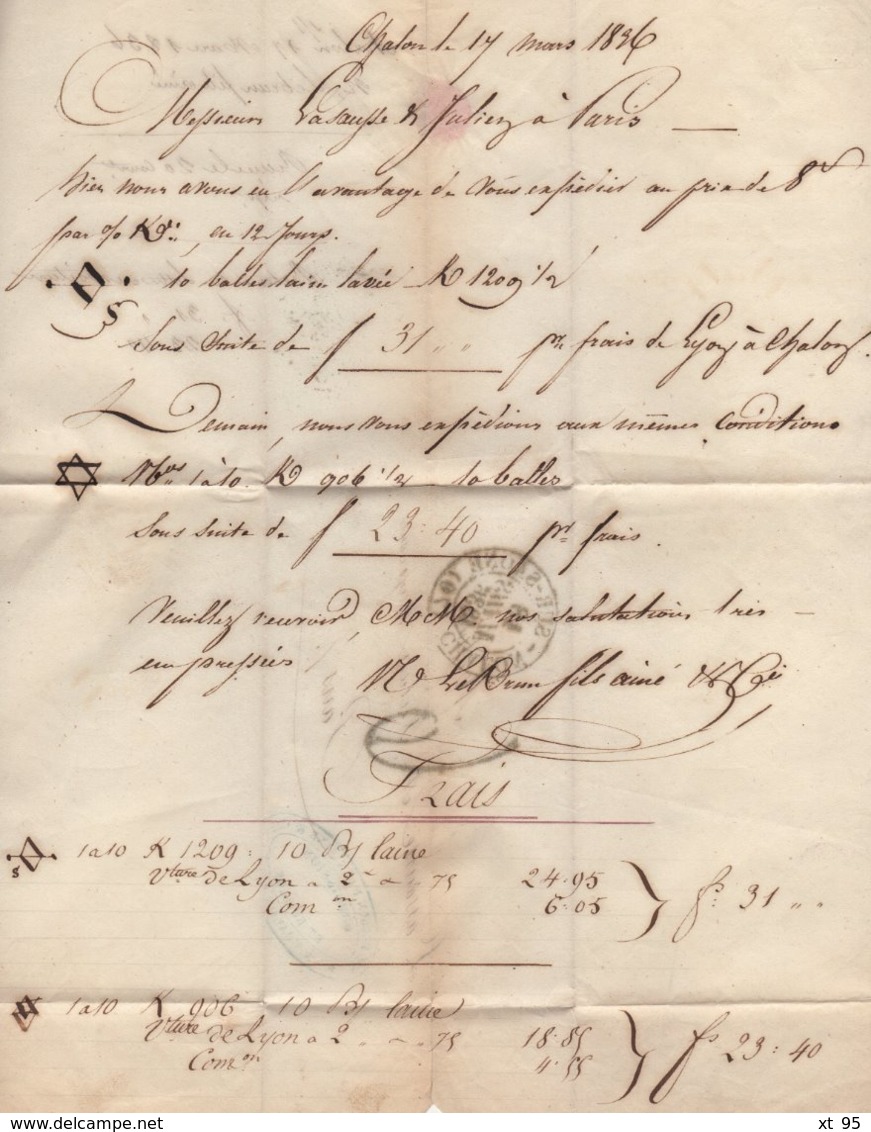 Chalon le 17 mars 1836
Messieurs Lasausse & Julien à Paris
Hier nous avons eu l'avantage de vous expédier au prix de 8 f
par % K°:, en 12 Jours.
10 balles laine lavée K 1209 1/2
S
Sous suite de f 31 " " pr. frais de Lyon à Chalon.
Demain, nous vous expédions aux mêmes conditions
Nos 1 à 10. K 906 1/2 10 balles
Sous suite de f 23:40 pr. frais.
Veuillez recevoir, MM nos salutations très
empressées
Ne LeBrun fils ainé & Cie
Frais
S 1 a 10 K 1209: 10 Bs laine
Vture de Lyon a 2 - a - 75 24.95
Com on 6:05 f: 31 " "
1 a 10 K 906 10 Bs laine
Vture de Lyon a 2 " a " 75 18:85
Com on 4.55 fs 23:40
xt 95